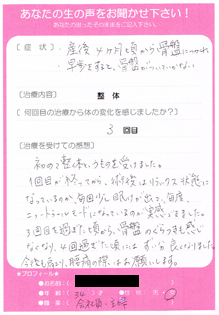 あなたの生の声をお聞かせ下さい！
あなたの思ったそのままをご記入下さい。
〔 症 状 〕 産後 4ヶ月と頃から骨盤につかれ
早歩きをすると、骨盤がついていかない
〔治療内容〕 整 体
〔何回目の治療から体の変化を感じましたか？〕
3 回目
〔治療を受けての感想〕
初めて整体というものを受けました。
1回目が終ってから、体はリラックス状態に
なっているのか、毎回少し眠けが出て、毎度、
ニュートラルモードになっているのが実感できました。
3回目を過ぎた頃から、骨盤のぐらつきも感じ
なくなり、4回過ぎた頃には ずい分良くなりました。
今後も宜しく、腰痛の際はお願いします。
★プロフィール★
●お名前：（
●年 齢：（ 34 ）才
●ご職業：（ 会社員